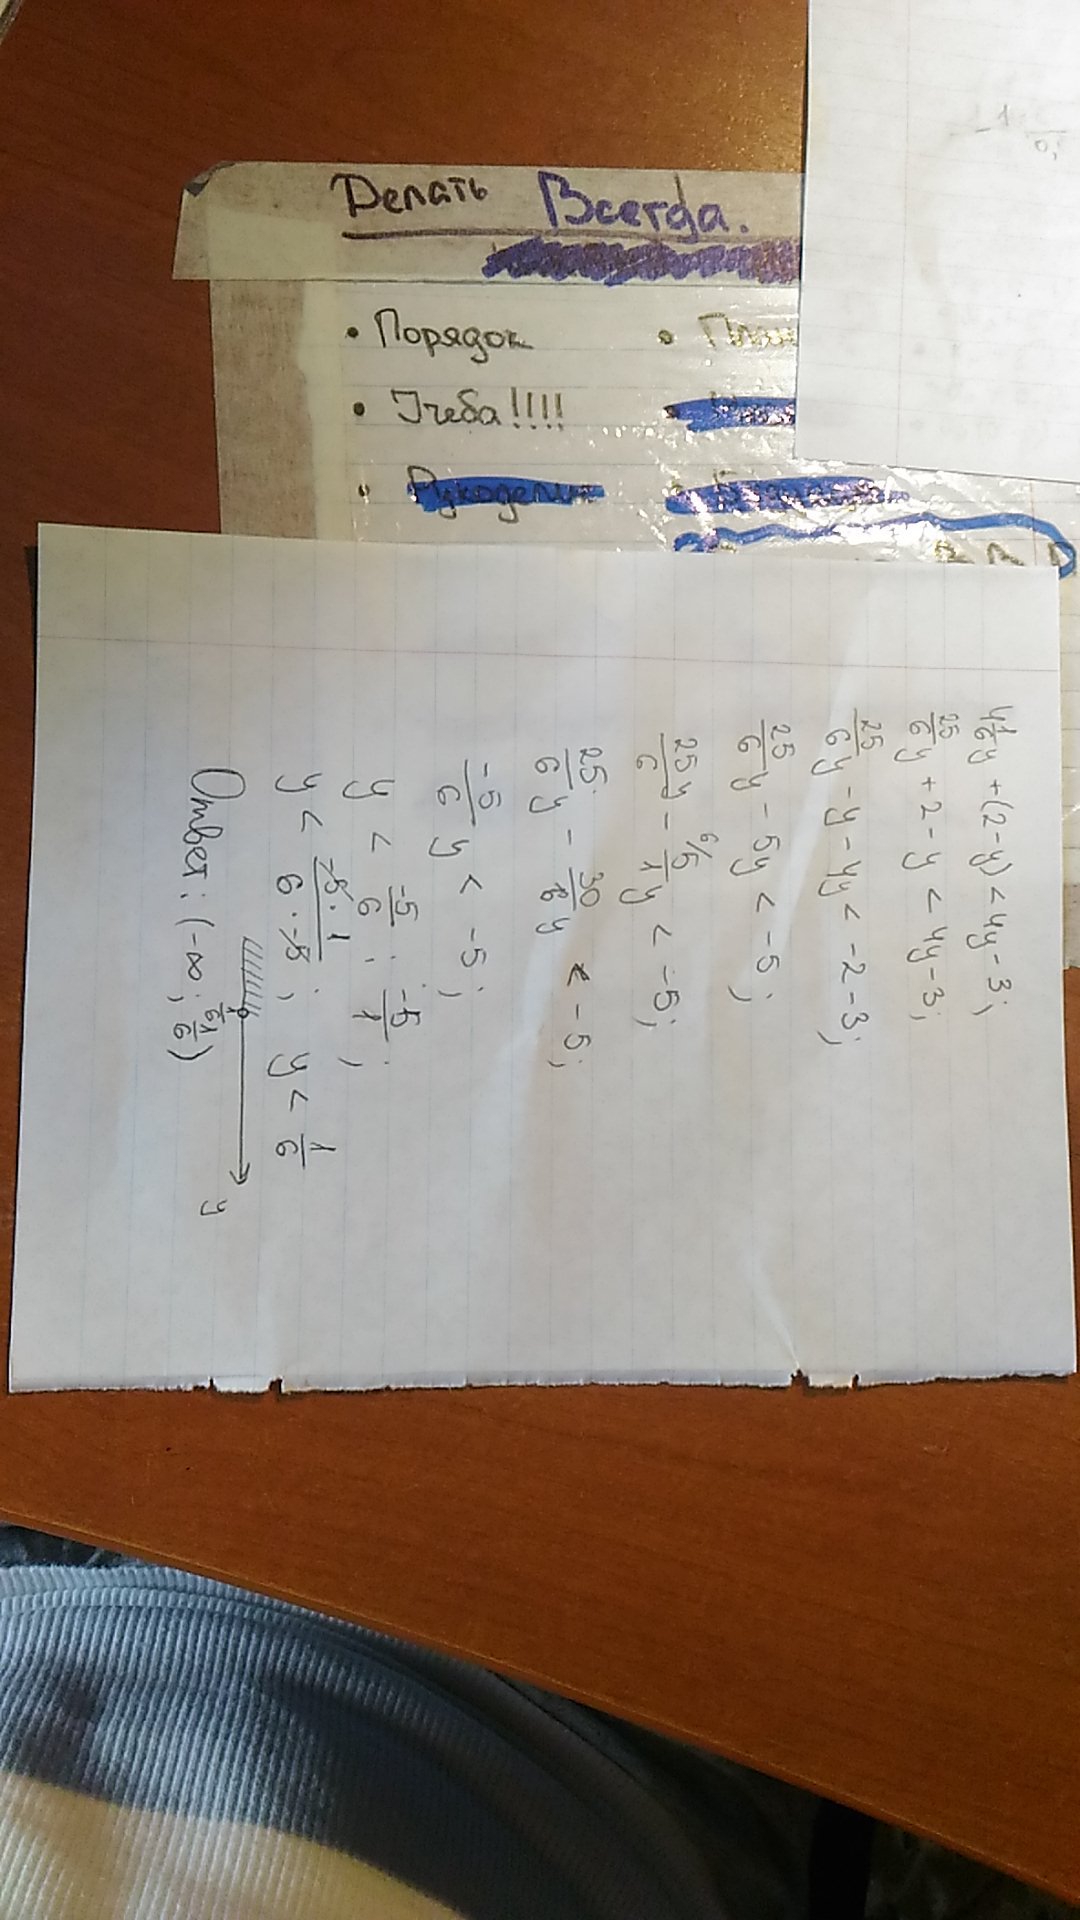 Делать Всегда.
• Порядок
• Учеба!!!!
• Рукоделие
4 1/6 y + (2 - y) < 4y - 3;
25/6 y + 2 - y < 4y - 3;
25/6 y - y - 4y < -2 - 3;
25/6 y - 5y < -5;
25/6 y - 6/5/1 y < -5;
25/6 y - 30/6 y < -5;
-5/6 y < -5;
y < -5/6 : -5/1;
y < -5·1/6·-5; y < 1/6
1/6 y
Ответ: (-∞; 1/6)